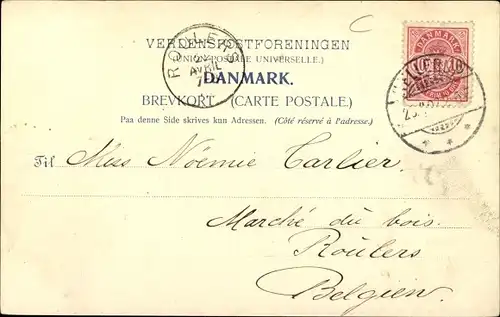 VERDENSPOSTFORENINGEN
(UNION POSTALE UNIVERSELLE.)
DANMARK.
BREVKORT (CARTE POSTALE.)
Paa denne Side skrives kun Adressen. (Côté réservé à l'adresse.)
ROULERS
AVRIL
DANMARK
Til Miss Noémie Carlier.
Marché du bois.
Roulers
Belgien.